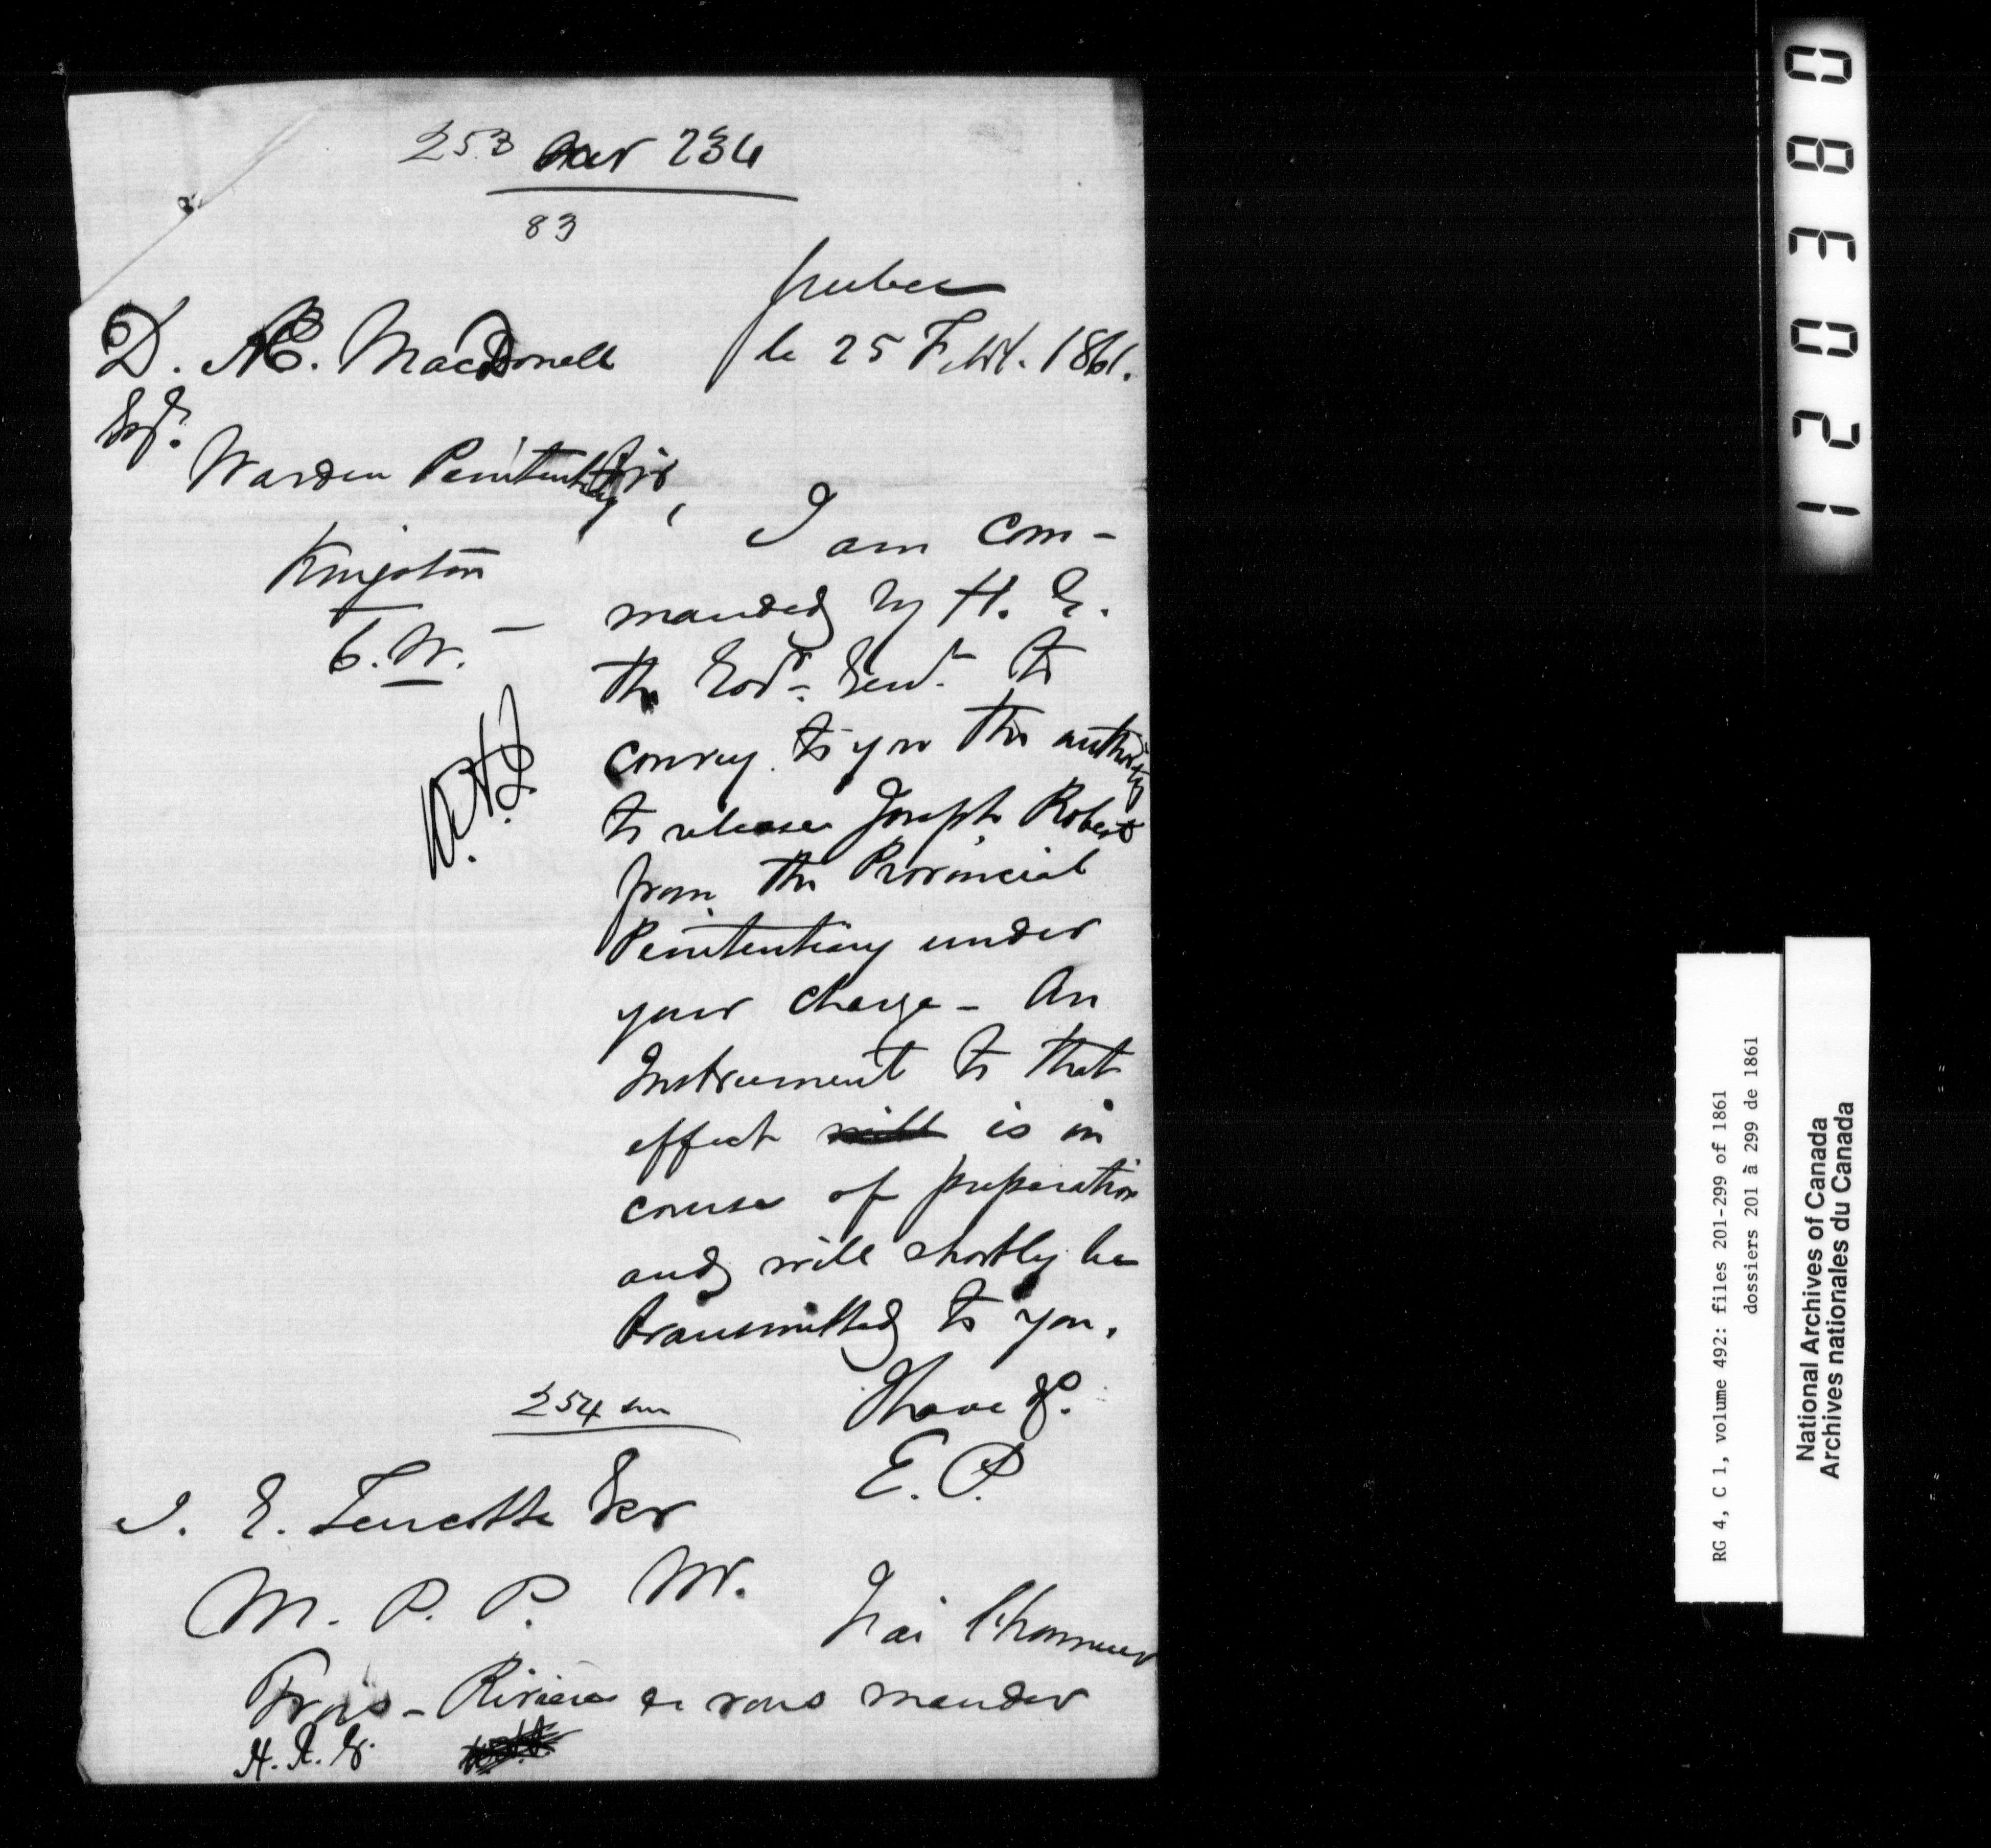 253 sur 234
83
Quebec
le 25 Fevr. 1861.
D. Æ. MacDonell
Esqr.
Warden Penitentiary,
Kingston
C. W. —
I am com-
manded by H. E.
the Govr. Genl. to
convey to you the authority
to release Joseph Robert
from the Provincial
Penitentiary under
your charge - An
Instrument to that
effect will is in
course of preparation
and will shortly be
transmitted to you.
I have &.
E. P.
254 sur
J. E. Turcotte Ecr
M. P. P.
Trois-Rivieres
M.
J'ai l'honneur
de vous mander
H. A. E.
0 8 3 0 2 1
RG 4, C 1, volume 492: files 201-299 of 1861
dossiers 201 à 299 de 1861
National Archives of Canada
Archives nationales du Canada